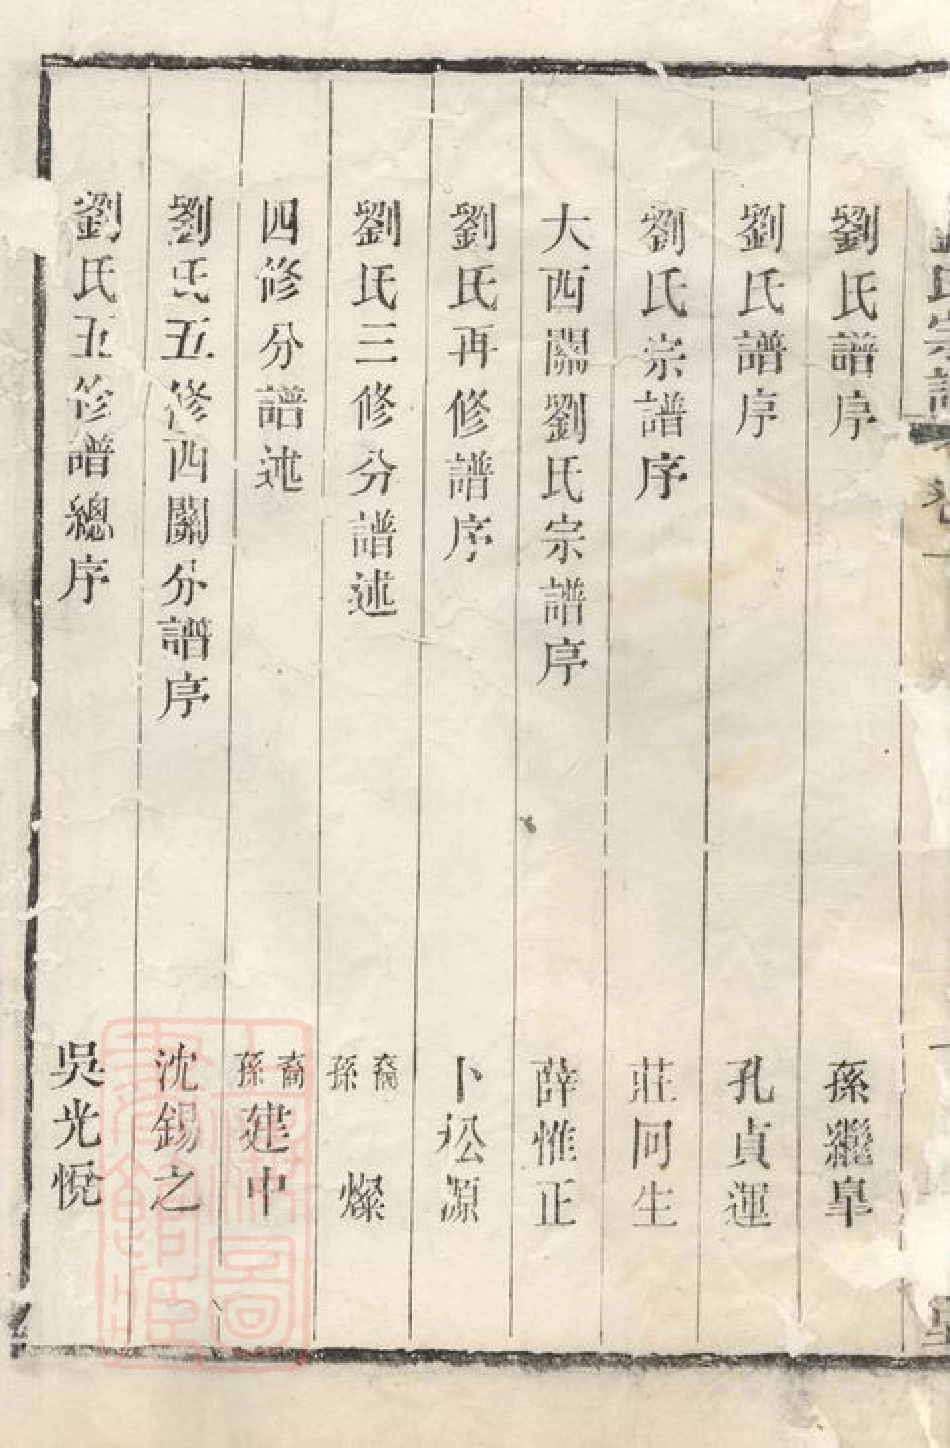 劉氏宗譜 卷一
劉氏譜序 孫繼臯
劉氏譜序 孔貞運
劉氏宗譜序 莊同生
大西關劉氏宗譜序 薛惟正
劉氏再修譜序 卜䜣源
劉氏三修分譜述 裔孫燦
四修分譜述 裔孫建中
劉氏五修西關分譜序 沈錫之
劉氏五修譜總序 吳光悅